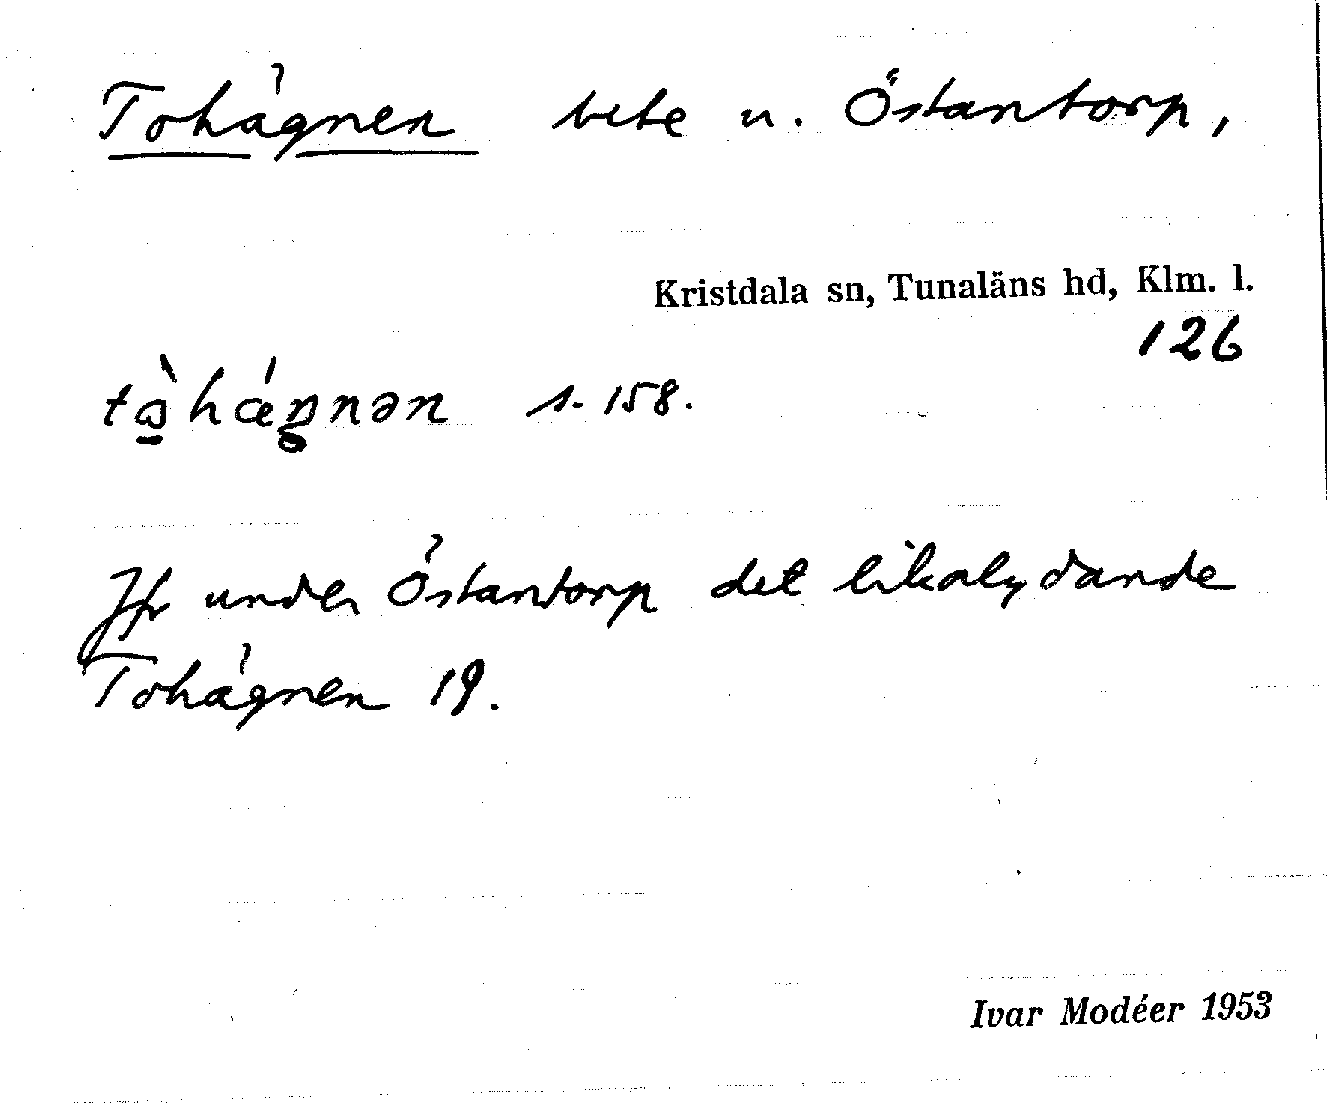 Tohägnen bete u. Östantorp,
Kristdala sn, Tunaläns hd, Klm. l.
126
s. 158.
Jfr under Östantorp det likalydande
Tohägnen 19.
Ivar Modéer 1953